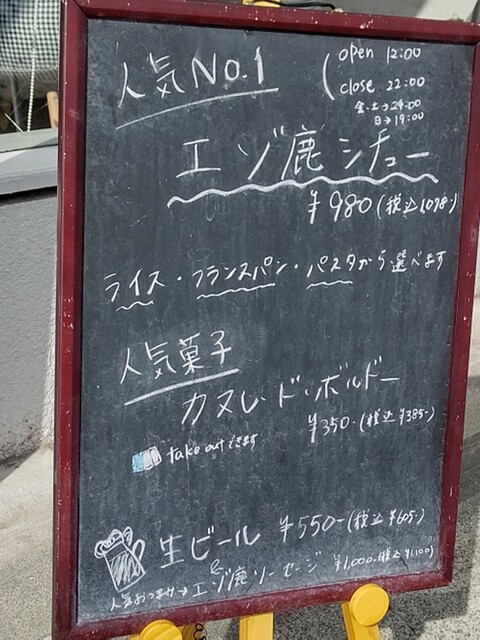 人気No.1
open 12:00
close 22:00
金・土→24:00
日→19:00
エゾ鹿シチュー
¥980(税込1,078-)
ライス・フランスパン・パスタから選べます
人気菓子
カヌレ・ド・ボルドー
¥350-(税込¥385-)
take outできます
生ビール ¥550-(税込¥605-)
人気おつまみ→エゾ鹿ソーセージ ¥1,000-(税込¥1,100)